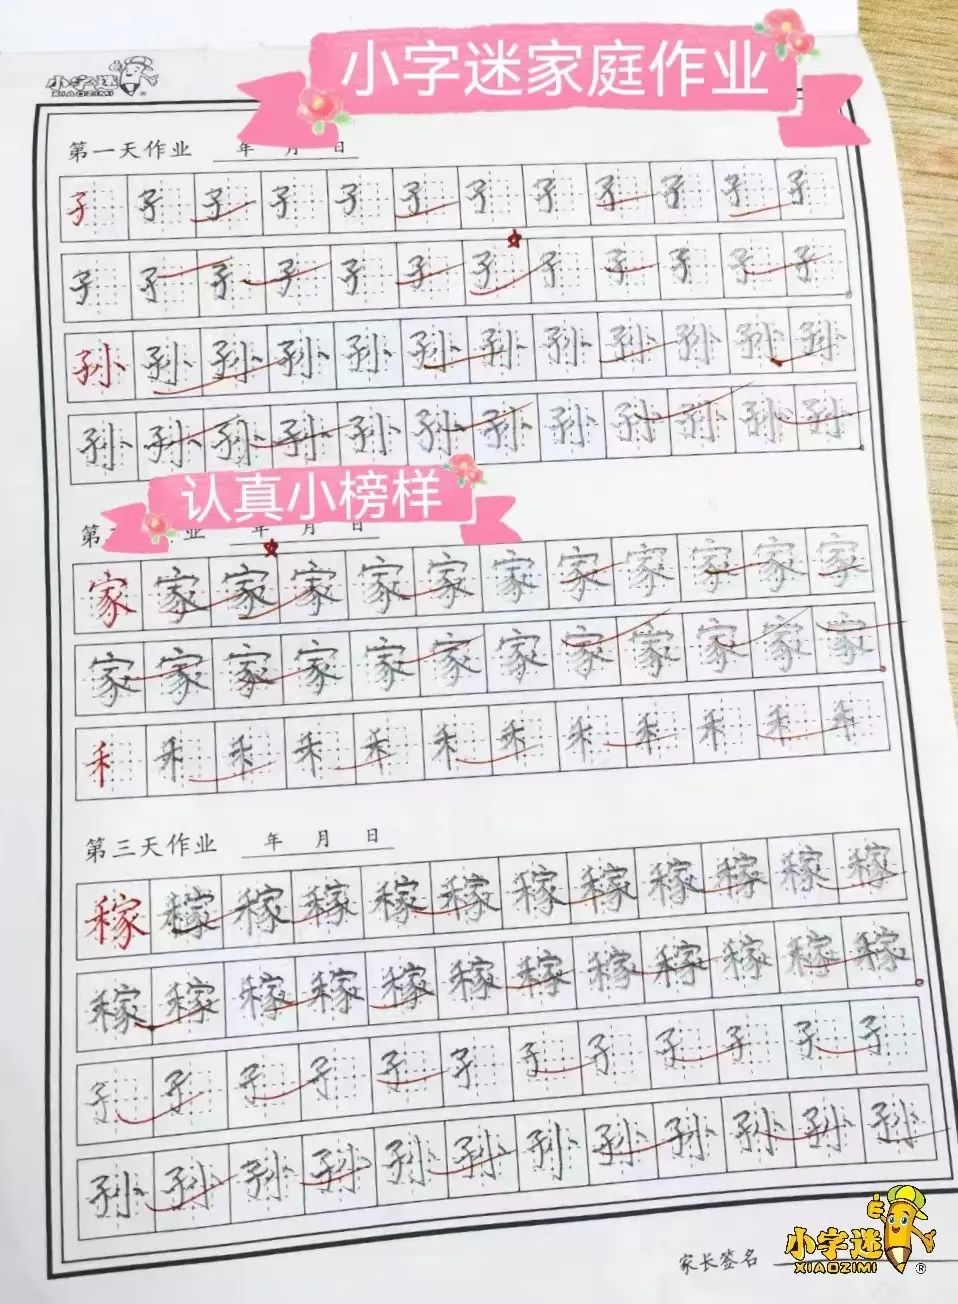 小字迷
XIAOZIMI
小字迷家庭作业
第一天作业 年 月 日
孑 孑 孑 孑 孑 孑 孑 孑 孑 孑 孑 孑
孑 孑 孑 孑 孑 孑 孑 孑 孑 孑 孑 孑
孙 孙 孙 孙 孙 孙 孙 孙 孙 孙 孙 孙
孙 孙 孙 孙 孙 孙 孙 孙 孙 孙 孙 孙
认真小榜样
第 业 年 月 日
家 家 家 家 家 家 家 家 家 家 家 家
家 家 家 家 家 家 家 家 家 家 家 家
禾 禾 禾 禾 禾 禾 禾 禾 禾 禾 禾 禾
第三天作业 年 月 日
稼 稼 稼 稼 稼 稼 稼 稼 稼 稼 稼 稼
稼 稼 稼 稼 稼 稼 稼 稼 稼 稼 稼 稼
孑 孑 孑 孑 孑 孑 孑 孑 孑 孑 孑 孑
孙 孙 孙 孙 孙 孙 孙 孙 孙 孙 孙 孙
家长签名
小字迷
XIAOZIMI ®